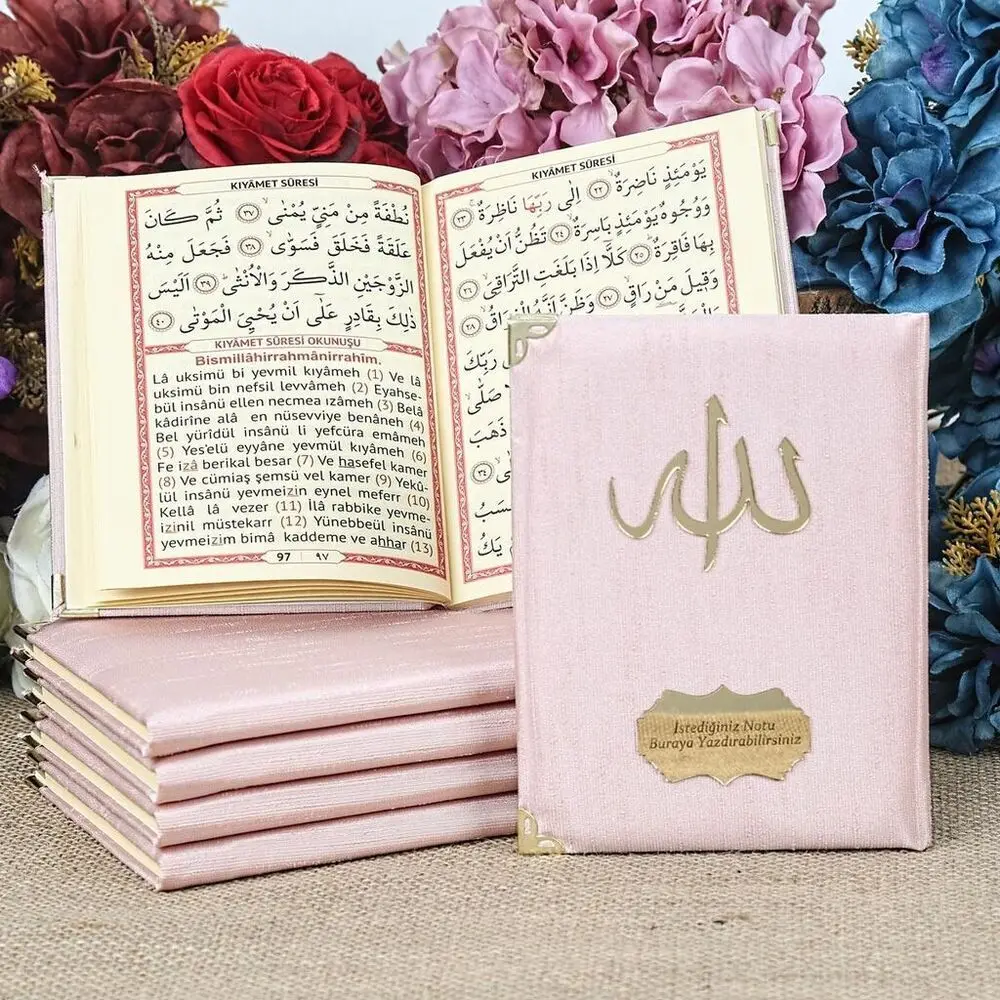 KIYÂMET SÛRESİ
نُطْفَةً مِنْ مَنِيٍّ يُمْنٰى ﴿٣٧﴾ ثُمَّ كَانَ
عَلَقَةً فَخَلَقَ فَسَوّٰى ﴿٣٨﴾ فَجَعَلَ مِنْهُ
الزَّوْجَيْنِ الذَّكَرَ وَالْاُنْثٰى ﴿٣٩﴾ اَلَيْسَ
ذٰلِكَ بِقَادِرٍ عَلٰٓى اَنْ يُحْيِىَ الْمَوْتٰى ﴿٤٠﴾
KIYÂMET SÛRESİ OKUNUŞU
Bismillâhirrahmânirrahîm.
Lâ uksimü bi yevmil kıyâmeh (1) Ve lâ
uksimü bin nefsil levvâmeh (2) Eyahse-
bül insânü ellen necmea ızâmeh (3) Belâ
kâdirîne alâ en nüsevviye benâneh (4)
Bel yürîdül insânü li yefcüra emâmeh
(5) Yes'elü eyyâne yevmül kıyâmeh (6)
Fe izâ berikal besar (7) Ve hasefel kamer
(8) Ve cümiaş şemsü vel kamer (9) Yekû-
lül insânü yevmeizin eynel meferr (10)
Kellâ lâ vezer (11) İlâ rabbike yevme-
izinil müstekarr (12) Yünebbeül insânü
yevmeizim bimâ kaddeme ve ahhar (13)
97 ٩٧
KIYÂMET SÛRESİ
يَوْمَئِذٍ نَاضِرَةٌ ﴿٢٢﴾ اِلٰى رَبِّهَا نَاظِرَةٌ ﴿٢٣﴾
وَوُجُوهٌ يَوْمَئِذٍ بَاسِرَةٌ ﴿٢٤﴾ تَظُنُّ اَنْ يُفْعَلَ
بِهَا فَاقِرَةٌ ﴿٢٥﴾ كَلَّٓا اِذَا بَلَغَتِ التَّرَاقِىَ ﴿٢٦﴾
وَقِيلَ مَنْ رَاقٍ ﴿٢٧﴾ وَظَنَّ اَنَّهُ الْفِرَاقُ ﴿٢٨﴾
رَبِّكَ
صَلّٰى
ذَهَبَ
﴿٣٤﴾
يَكُ
الله
İstediğiniz Notu
Buraya Yazdırabilirsiniz